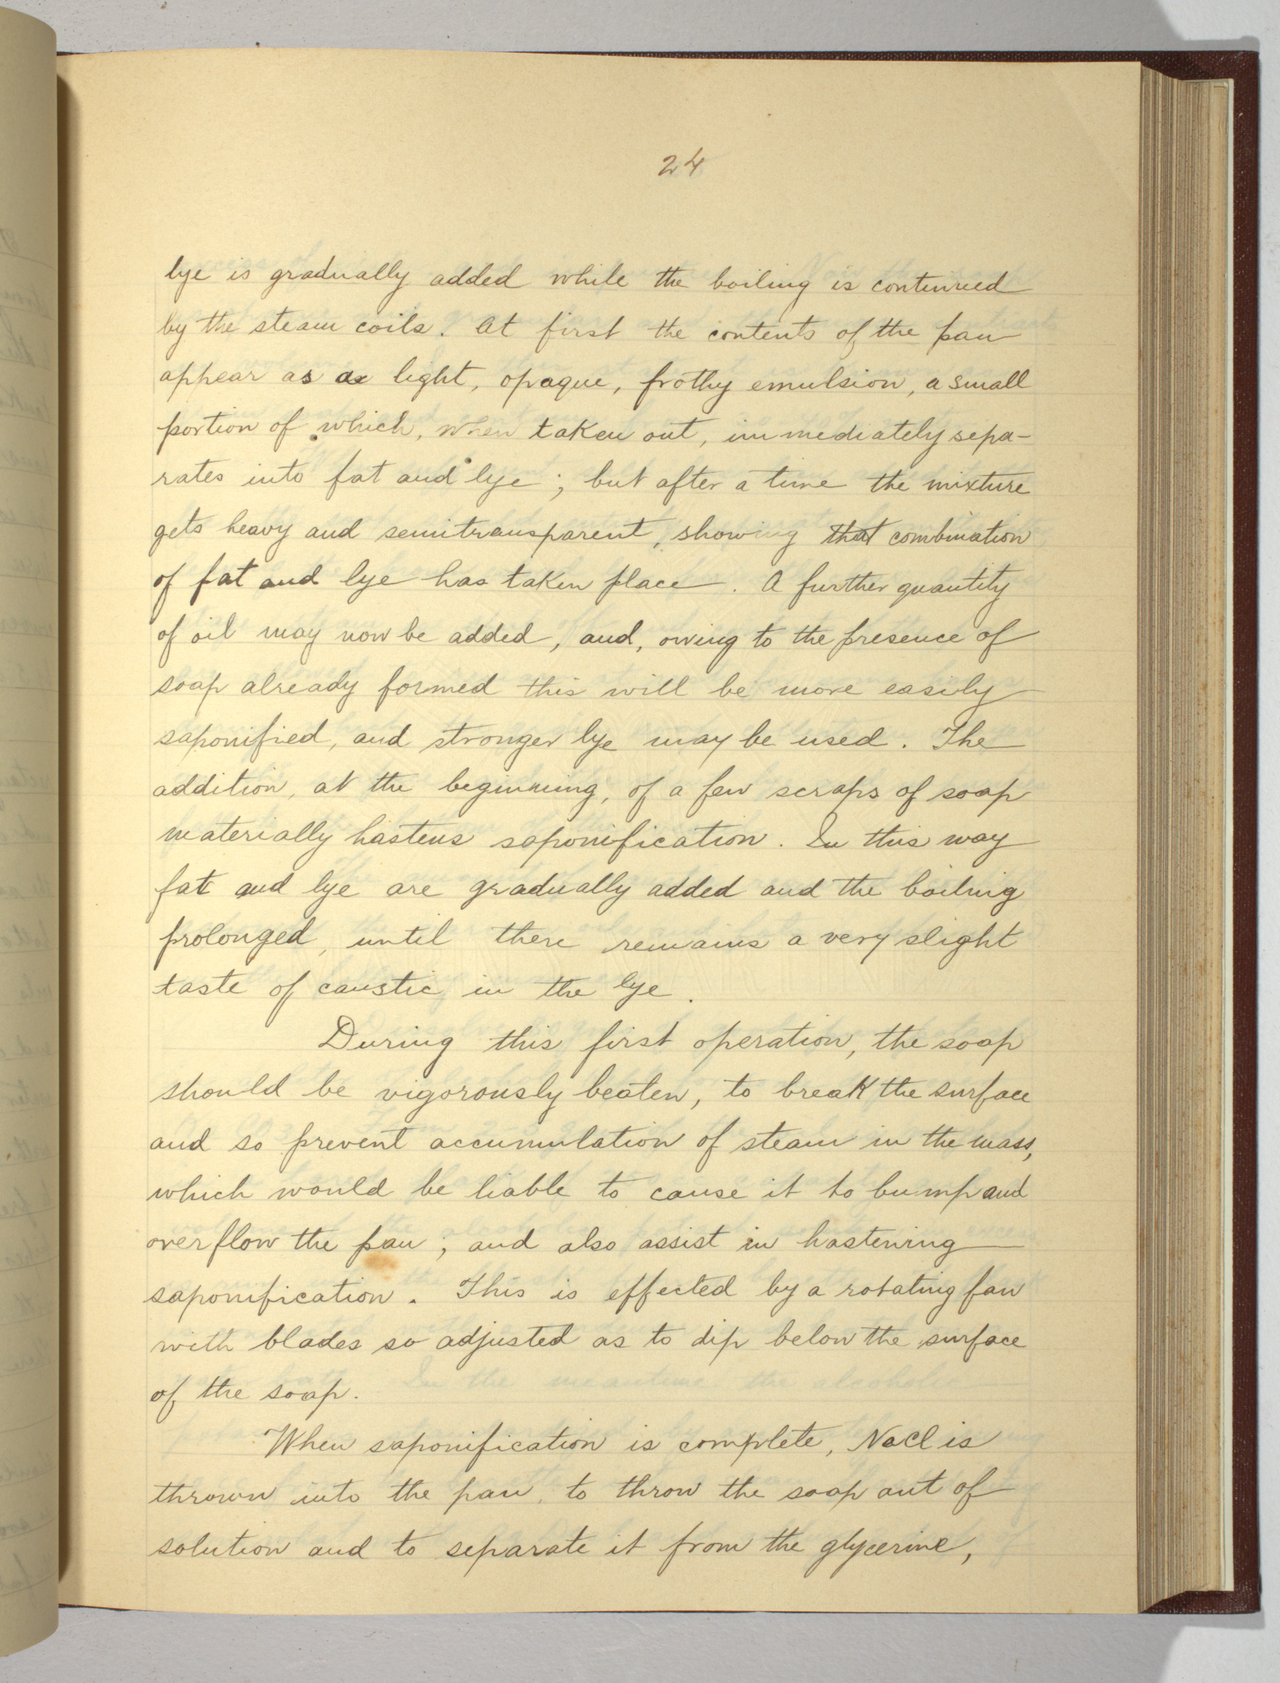 24
lye is gradually added while the boiling is continued
by the steam coils. At first the contents of the pan
appear as a light, opaque, frothy emulsion, a small
portion of which, when taken out, immediately sepa-
rates into fat and lye; but after a time the mixture
gets heavy and semitransparent, showing that combination
of fat and lye has taken place. A further quantity
of oil may now be added, and, owing to the presence of
soap already formed this will be more easily
saponified, and stronger lye may be used. The
addition, at the beginning, of a few scraps of soap
materially hastens saponification. In this way
fat and lye are gradually added and the boiling
prolonged, until there remains a very slight
taste of caustic in the lye.
During this first operation, the soap
should be vigorously beaten, to break the surface
and so prevent accumulation of steam in the mass,
which would be liable to cause it to bump and
overflow the pan; and also assist in hastening
saponification. This is effected by a rotating fan
with blades so adjusted as to dip below the surface
of the soap.
When saponification is complete, NaCl is
thrown into the pan, to throw the soap out of
solution and to separate it from the glycerine,